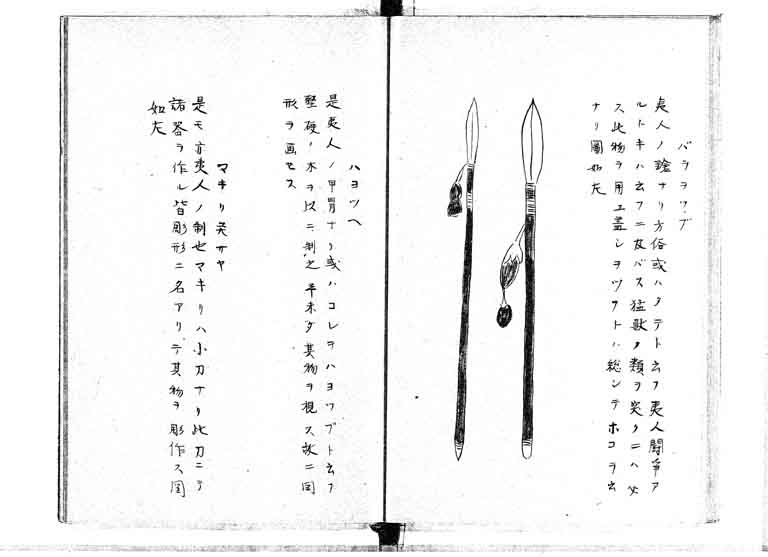 バラヲツプ
夷人ノ鎗ナリ方俗或ハクテト云フ夷人闘争ア
ルトキハ云フニ及バス猛獣ノ類ヲ突クニハ必
ス此物ヲ用ユ蓋シヲツフトハ総シテホコヲ云
ナリ圖如左
ハヨツヘ
是夷人ノ甲冑ナリ或ハコレヲハヨツプト云フ
堅硬ノ木ヲ以ニ制之 平未タ其物ヲ視ス故ニ図
形ヲ画セス
マキリ サヤ
是モ亦夷人ノ制也マキリハ小刀ナリ此刀ニテ
諸器ヲ作ル皆彫形ニ名アリテ其物ヲ彫作ス図
如左